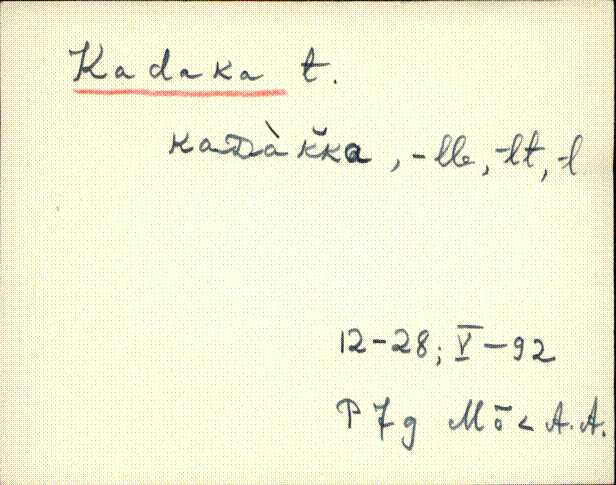 Kadaka t.
kaDàk̆ka, -lle, -lt, -l
12-28; V-92
P 7g Mõ < A.A.